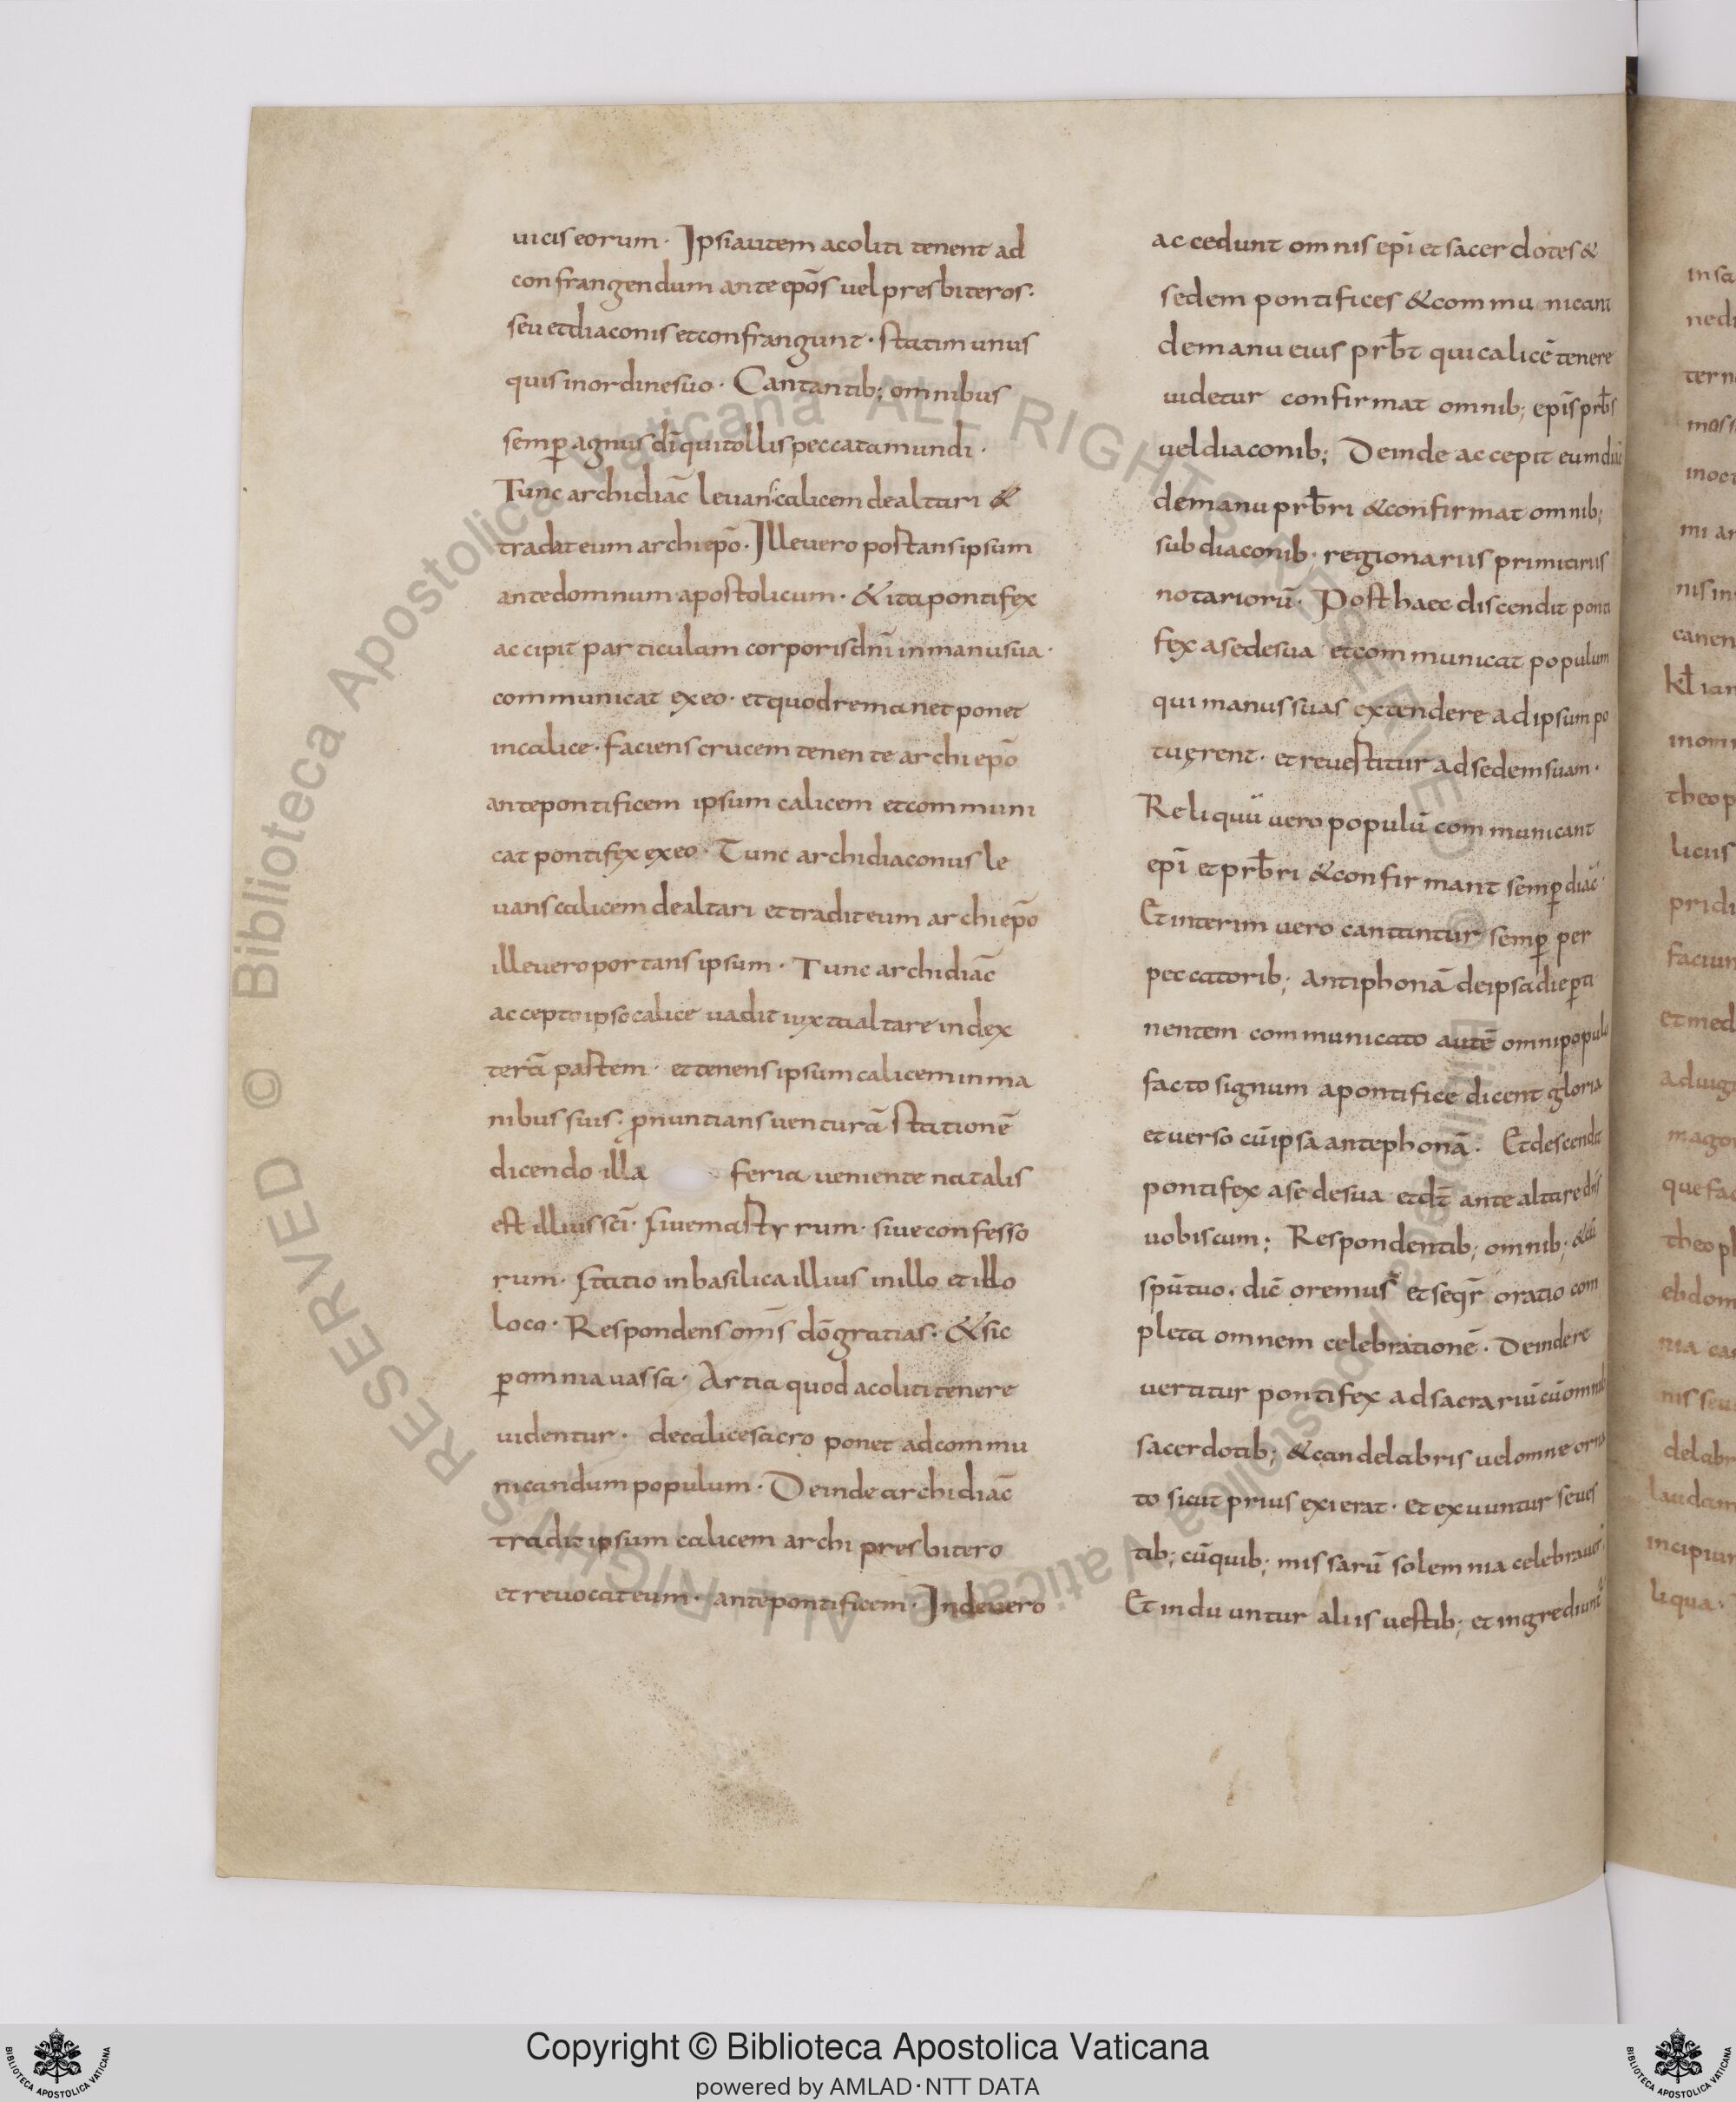 uicis eorum · Ipsi autem acoliti tenent ad
confrangendum ante epōs uel presbiteros ·
seu et diaconis et confrangunt · statim unus
quis in ordine suo · Cantantib; omnibus
semp̄ agnus dī qui tollis peccata mundi ·
Tunc archidiac̄ leuans calicem de altari &
tradit eum archiepō · Ille uero portans ipsum
ante domnum apostolicum · & ita pontifex
accipit particulam corporis dn̄i in manu sua ·
communicat ex eo · et quod remanet ponet
in calice · faciens crucem tenente archiepō
ante pontificem ipsum calicem et communi
cat pontifex ex eo · Tunc archidiaconus le
uans calicem de altari et tradit eum archiepō
ille uero portans ipsum · Tunc archidiac̄
accepto ipso calice uadit iuxta altare in dex
terā partem · et tenens ipsum calicem in ma
nibus suis · ꝓnuntians uenturā stationē
dicendo illa feria ueniente natalis
est illius sc̄i · siue martyrum · siue confesso
rum · statio in basilica illius in illo et illo
loco · Respondens om̄s dō gratias · & sic
ꝑ omnia uassa · Artia quod acoliti tenere
uidentur · de calice sacro ponet ad commu
nicandum populum · Deinde archidiac̄
tradit ipsum calicem archi presbitero
et reuocat eum · ante pontificem · Inde uero
accedunt omnis epī et sacerdotes &
sedem pontifices & communicant
de manu eius prb̄t qui calicē tenere
uidetur confirmat omnib; epīs prb̄s
uel diaconib; Deinde accepit eum
de manu prb̄ri & confirmat omnib;
subdiaconib · regionariis primicirius
notariorū · Post haec discendit ponti
fex a sede sua et communicat populum
qui manus suas extendere ad ipsum po
tuęrent · et reuestitur ad sedem suam ·
Reliquū uero populū communicant
epī et prb̄ri & confirmant semp̄ diac̄ ·
Et interim uero cantantur semp̄ per
peccatorib; antiphonā de ipsa die ꝑti
nentem communicato autē omni populo
facto signum a pontifice dicent gloria
et uerso cū ipsa antephonā · Et descendit
pontifex a sede sua et dt̄ ante altare dn̄s
uobiscum; Respondentib; omnib; & cū
spū tuo · dic̄ oremus et seqr̄ oratio com
pleta omnem celebrationē · Deinde re
uertitur pontifex ad sacrariū cū omnib
sacerdotib; & candelabris uel omne orna
to sicut prius exierat · et exuuntur se ues
tib; cū quib; missarū solemnia celebrauer̄
Et induuntur aliis uestib; et ingrediunt
ne
tern
mi ar
nis in
canen
kł ian
theop
licus
pridi
faciun
et med
ad uig
mago
que fac
theoph
ebdom
nia ca
nis seu
delabr
laudam
incipiun
liqua ·
© Biblioteca Apostolica Vaticana ALL RIGHTS RESERVED
Copyright © Biblioteca Apostolica Vaticana
powered by AMLAD·NTT DATA
BIBLIOTECA APOSTOLICA VATICANA
BIBLIOTECA APOSTOLICA VATICANA